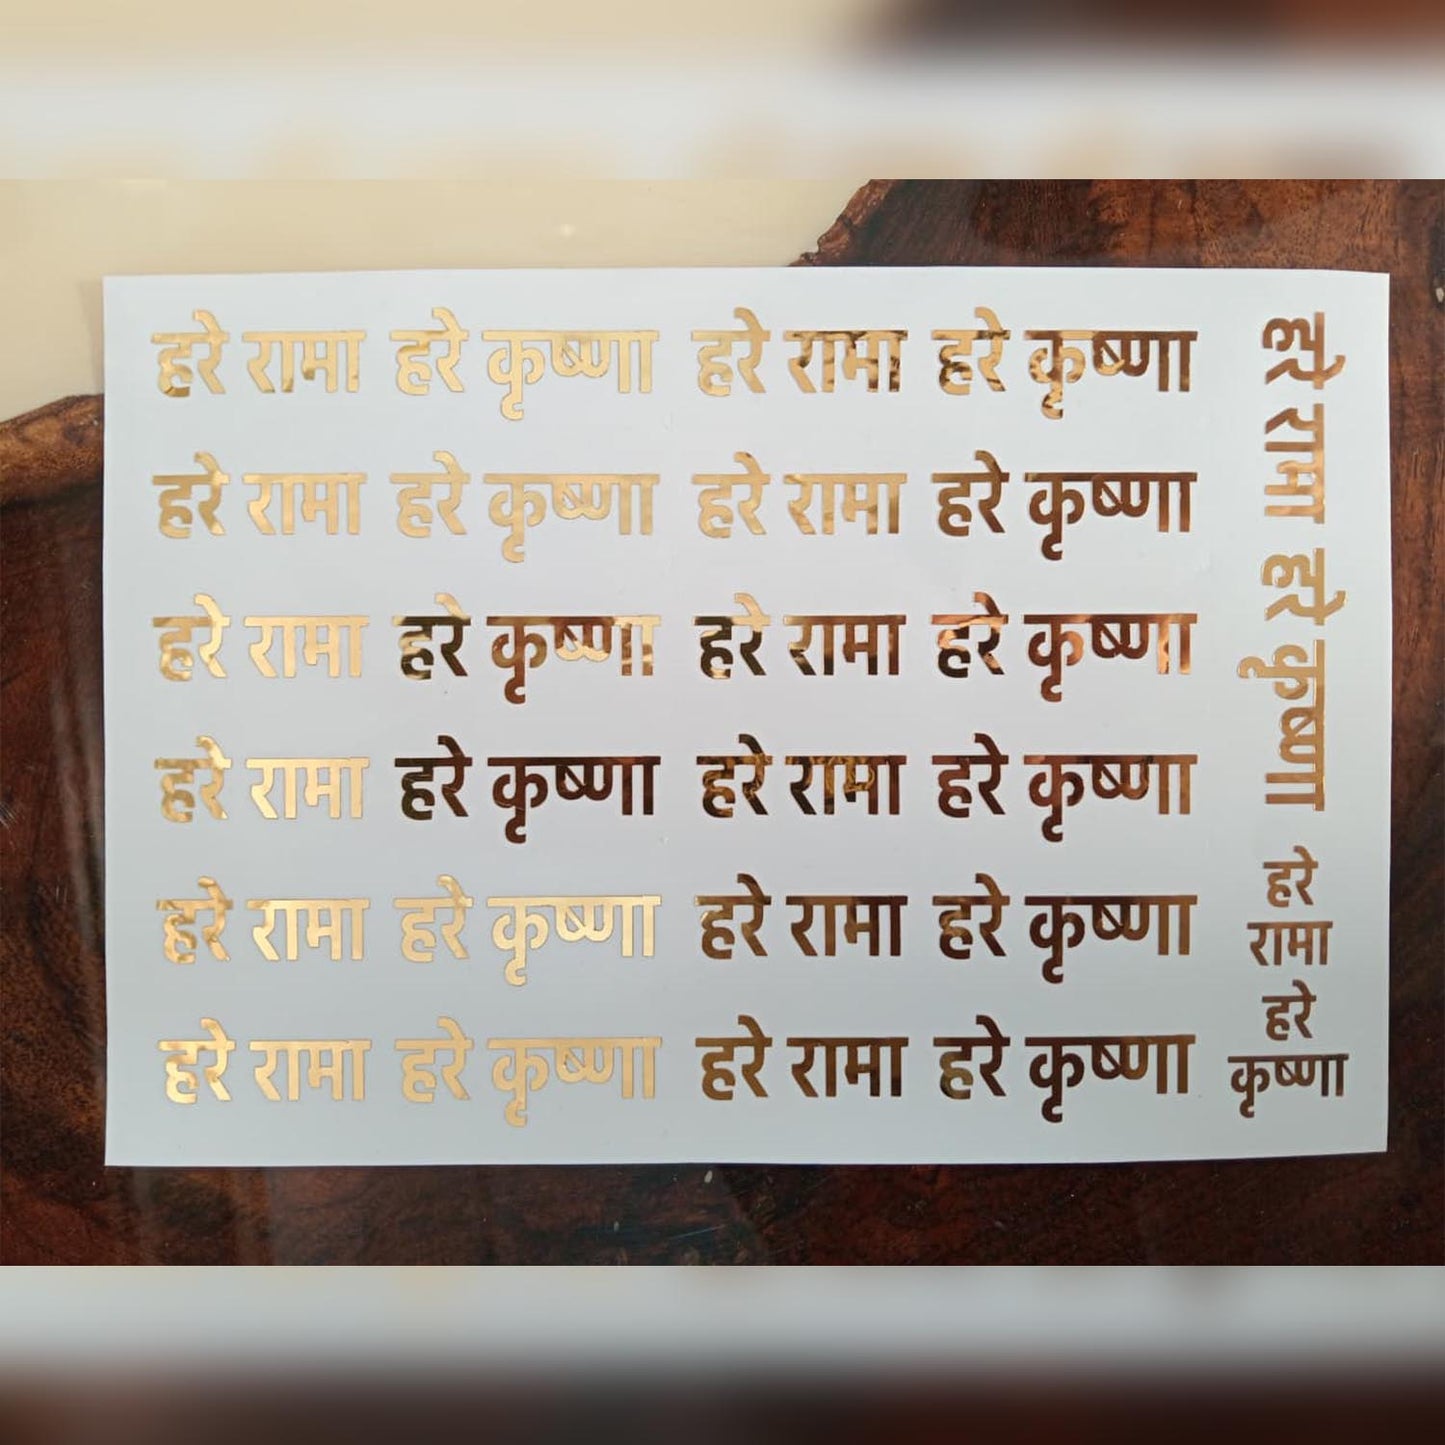 हरे रामा हरे कृष्णा हरे रामा हरे कृष्णा
हरे रामा हरे कृष्णा हरे रामा हरे कृष्णा
हरे रामा हरे कृष्णा हरे रामा हरे कृष्णा
हरे रामा हरे कृष्णा हरे रामा हरे कृष्णा
हरे रामा हरे कृष्णा हरे रामा हरे कृष्णा
हरे रामा हरे कृष्णा हरे रामा हरे कृष्णा
हरे रामा हरे कृष्णा
हरे
रामा
हरे
कृष्णा